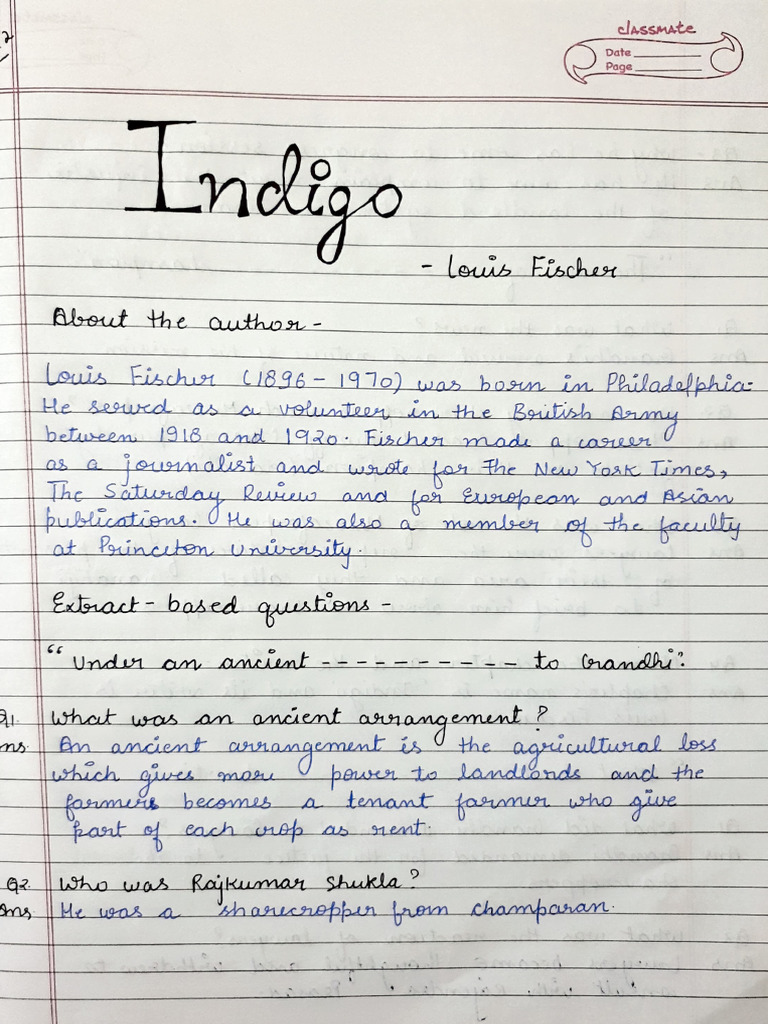 2
classmate
Date
Page
Indigo
- Louis Fischer
About the author -
Louis Fischer (1896 - 1970) was born in Philadelphia.
He served as a volunteer in the British Army
between 1918 and 1920. Fischer made a career
as a journalist and wrote for The New York Times,
The Saturday Review and for European and Asian
publications. He was also a member of the faculty
at Princeton University.
Extract - based questions -
"Under an ancient - - - - - - - - - - to Gandhi".
Q1. What was an ancient arrangement?
ns. An ancient arrangement is the agricultural loss
which gives more power to landlords and the
farmers becomes a tenant farmer who give
part of each crop as rent.
Q2. Who was Rajkumar Shukla?
ns. He was a sharecropper from champaran.